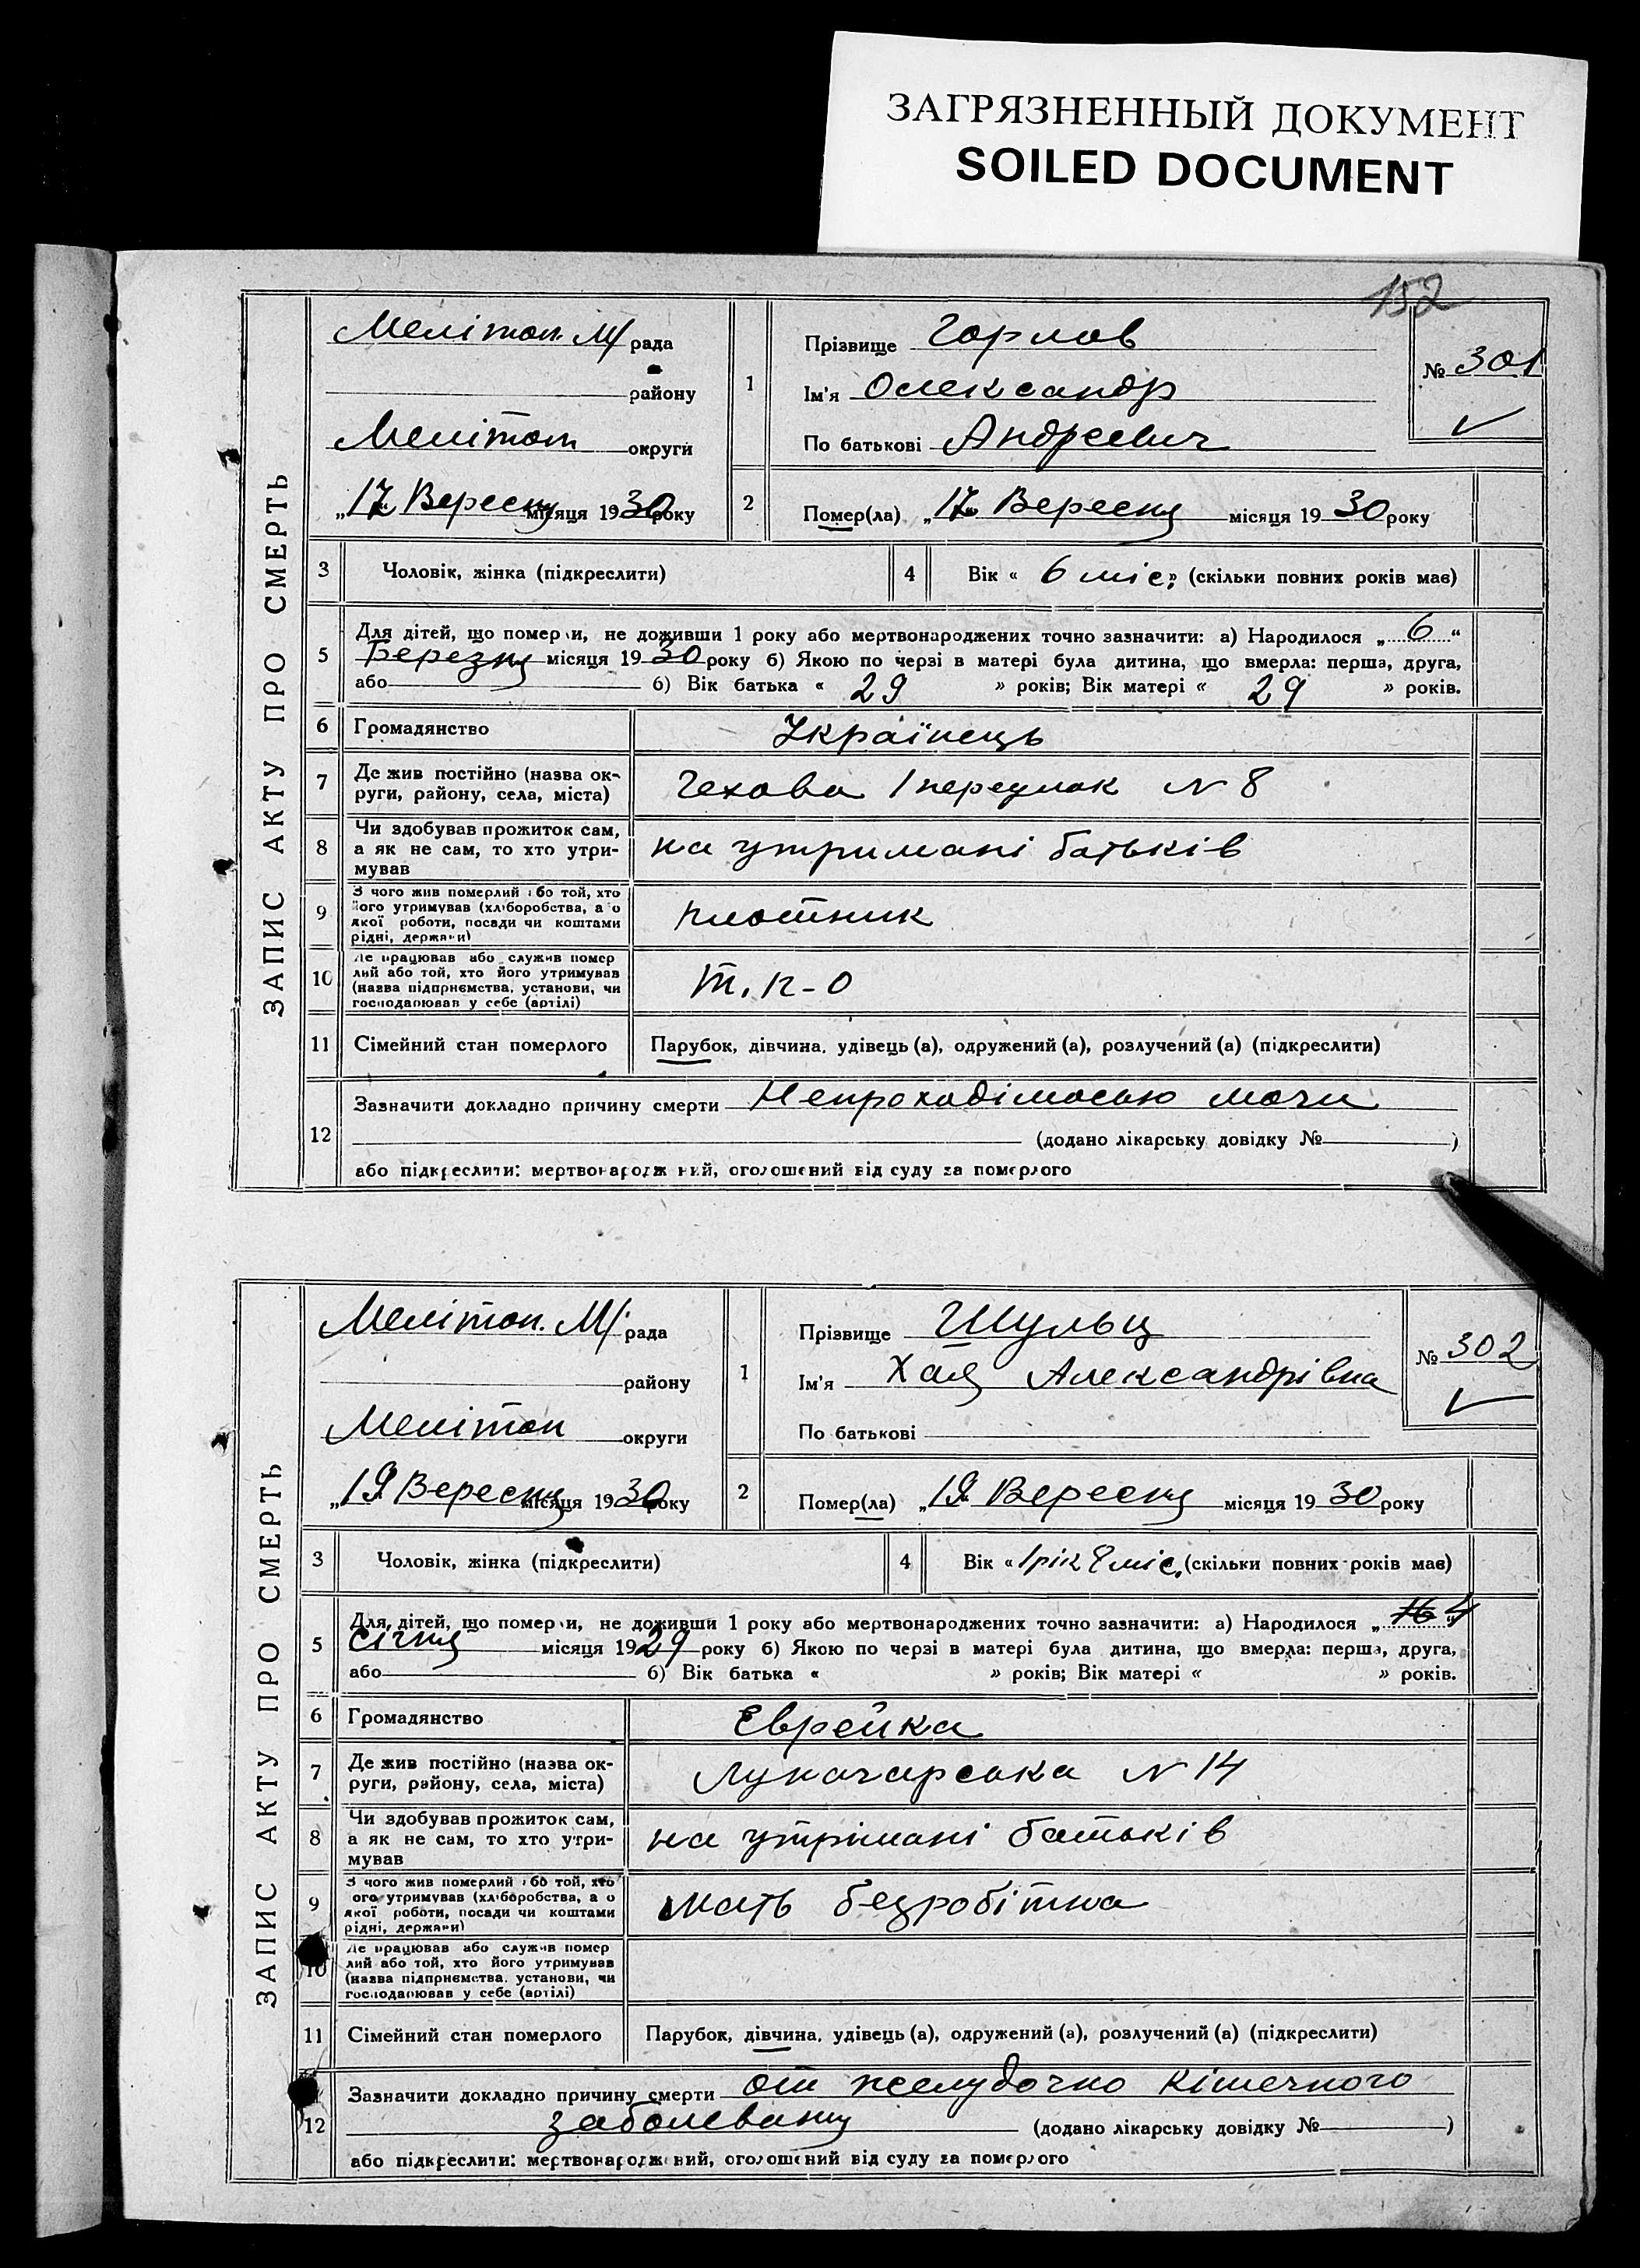 ЗАГРЯЗНЕННЫЙ ДОКУМЕНТ
SOILED DOCUMENT
152
ЗАПИС АКТУ ПРО СМЕРТЬ
Мелітоп. М/ рада
району
Мелітоп округи
„17 Вересня місяця 1930 року
1
Прізвище Горлов
Ім'я Олександр
По батькові Андреевич
№ 301
2
Помер(ла) „17 Вересня місяця 1930 року
3 Чоловік, жінка (підкреслити)
4 Вік « 6 міс.» (скільки повних років має)
5 Для дітей, що померли, не доживши 1 року або мертвонароджених точно зазначити: а) Народилося „6“
Березня місяця 1930 року б) Якою по черзі в матері була дитина, що вмерла: перша, друга,
або б) Вік батька « 29 » років; Вік матері « 29 » років.
6 Громадянство Українець
7 Де жив постійно (назва ок-
руги, району, села, міста) Чехова 1 переулок N 8
8 Чи здобував прожиток сам,
а як не сам, то хто утри-
мував на утримані батьків
9 З чого жив померлий або той, хто
його утримував (хліборобства, або
якої роботи, посади чи коштами
рідні, держави) плотник
10 Де працював або служив помер
лий або той, хто його утримував
(назва підприємства, установи, чи
господарював у себе (артілі) Т. П-О
11 Сімейний стан померлого Парубок, дівчина, удівець (а), одружений (а), розлучений (а) (підкреслити)
12 Зазначити докладно причину смерти Непроходімосью мочи
(додано лікарську довідку № )
або підкреслити: мертвонароджений, оголошений від суду за померлого
ЗАПИС АКТУ ПРО СМЕРТЬ
Мелітоп. М/ рада
району
Мелітоп округи
„19 Вересня місяця 1930 року
1
Прізвище Шульц
Ім'я Хая Александрівна
По батькові
№ 302
2
Помер(ла) „19 Вересня місяця 1930 року
3 Чоловік, жінка (підкреслити)
4 Вік « 1 рік 8 міс. (скільки повних років має)
5 Для дітей, що померли, не доживши 1 року або мертвонароджених точно зазначити: а) Народилося „16 4
Січня місяця 1929 року б) Якою по черзі в матері була дитина, що вмерла: перша, друга,
або б) Вік батька « » років; Вік матері « » років.
6 Громадянство Еврейка
7 Де жив постійно (назва ок-
руги, району, села, міста) Луначарська N 14
8 Чи здобував прожиток сам,
а як не сам, то хто утри-
мував на утрімані батьків
9 З чого жив померлий або той, хто
його утримував (хліборобства, або
якої роботи, посади чи коштами
рідні, держави) мать безробітна
10 Де працював або служив помер
лий або той, хто його утримував
(назва підприємства, установи, чи
господарював у себе (артілі)
11 Сімейний стан померлого Парубок, дівчина, удівець (а), одружений (а), розлучений (а) (підкреслити)
12 Зазначити докладно причину смерти от желудочно кішечного
заболеваня (додано лікарську довідку № )
або підкреслити: мертвонароджений, оголошений від суду за померлого